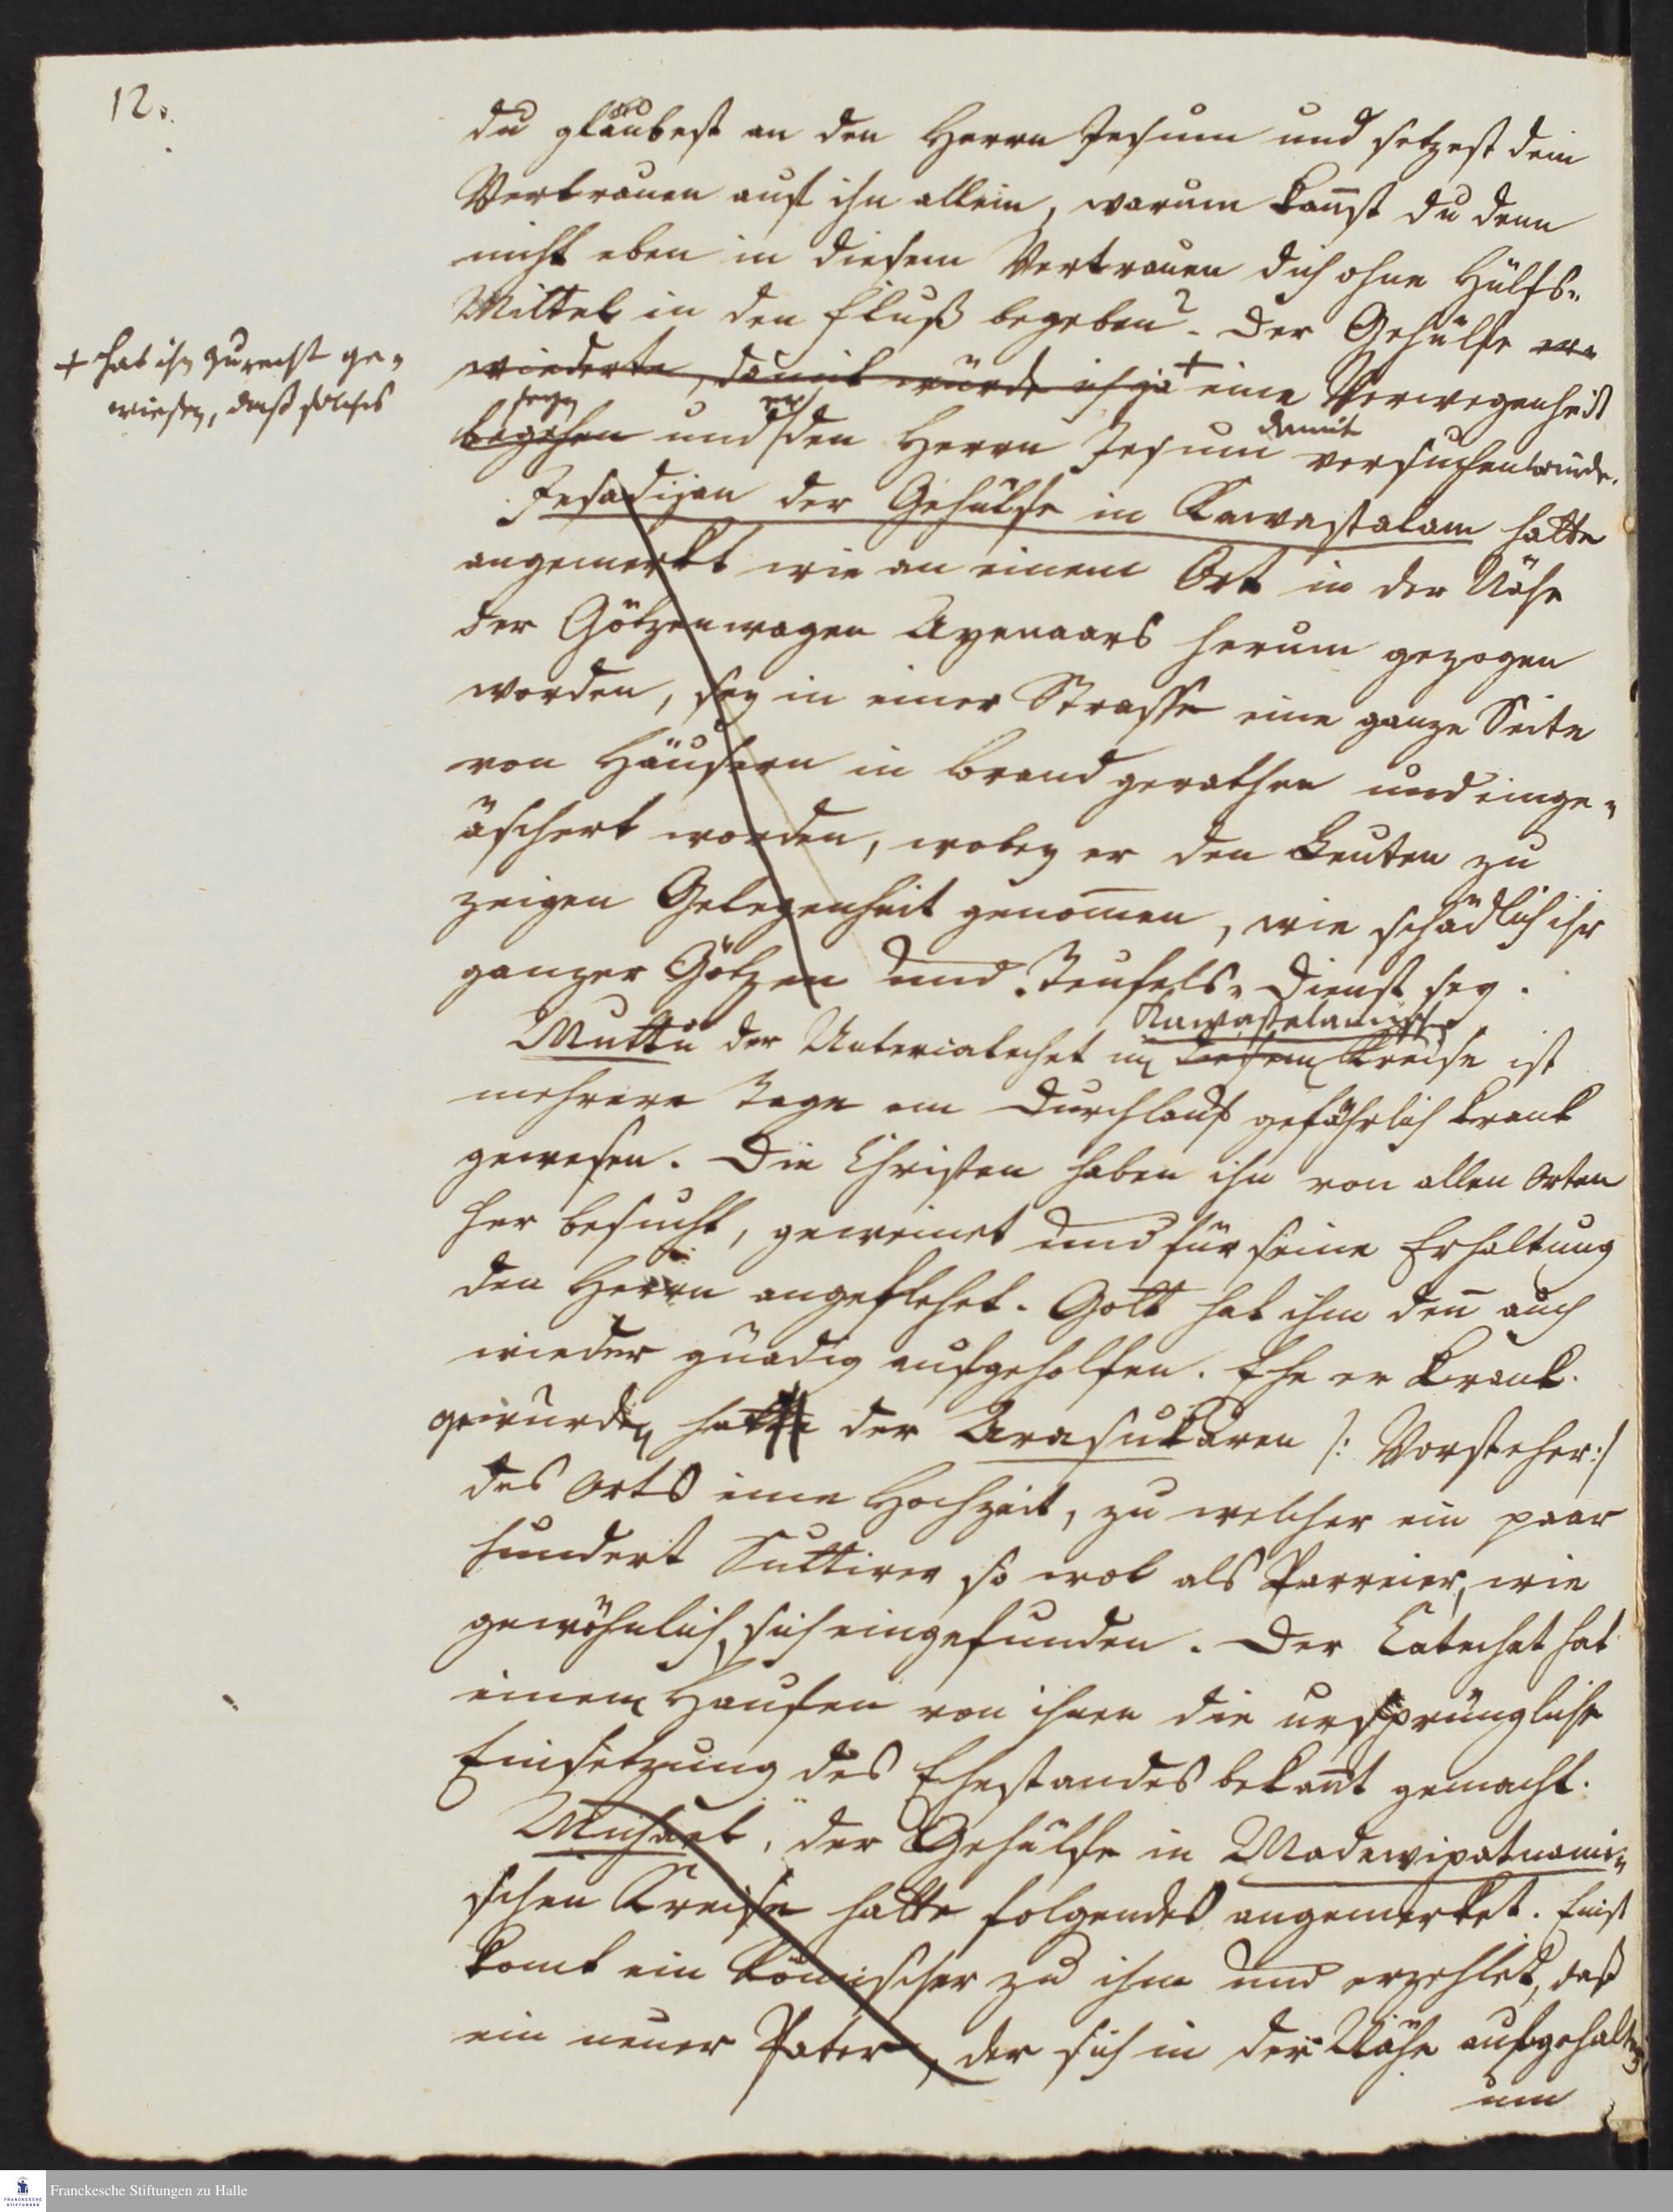 12.
du glaubest an den Herrn Jesum und setzest dein
Vertrauen auf ihn allein, warum kan̄st du denn
nicht eben in diesem Vertrauen dich ohne Hülfs-
Mittel in den Fluß begeben? Der Gehülfe er-
+ hat ihn zurecht ge-
wiesen, daß solches
wiederte, damit würde ich ja + eine Verwegenheit
seyn er damit
begehen und den Herrn Jesum versuchen würde.
Jesadijan der Gehülfe in Kawastalam hatte
angemerkt wie an einem Ort in der Nähe
der Götzenwagen Ayenaars herum gezogen
worden, sey in einer Strasse eine ganze Seite
von Häusern in brand gerathen und einge-
äschert worden, wobey er den Leuten zu
zeigen Gelegenheit genom̄en, wie schädlich ihr
ganzer Götzen und Teufels-Dienst sey.
Kawastalamischen
Muttu der Untercatechet im diesem Kreise ist
mehrere Tage am Durchlauf gefährlich krank
gewesen. Die Christen haben ihn von allen Orten
her besucht, geweinet und für seine Erhaltung
den Herrn angeflehet. Gott hat ihm den̄ auch
wieder gnädig aufgeholfen. Ehe er krank
geworden hatte der Arasukaren /: Vorsteher :/
des Orts eine Hochzeit, zu welcher ein paar
hundert Suttirer so wol als Parreier, wie
gewöhnlich, sich eingefunden. Der Catechet hat
einem Haufen von ihnen die ursprüngliche
Einsetzung des Ehestandes bekan̄t gemacht.
Michael, der Gehülfe in Madewipatnami-
schen Kreise hatte folgendes angemerket. Einst
komt ein Römischer zu ihm und erzehlet, daß
ein neuer Pater, der sich in der Nähe aufgehalten,
um
Franckesche Stiftungen zu Halle